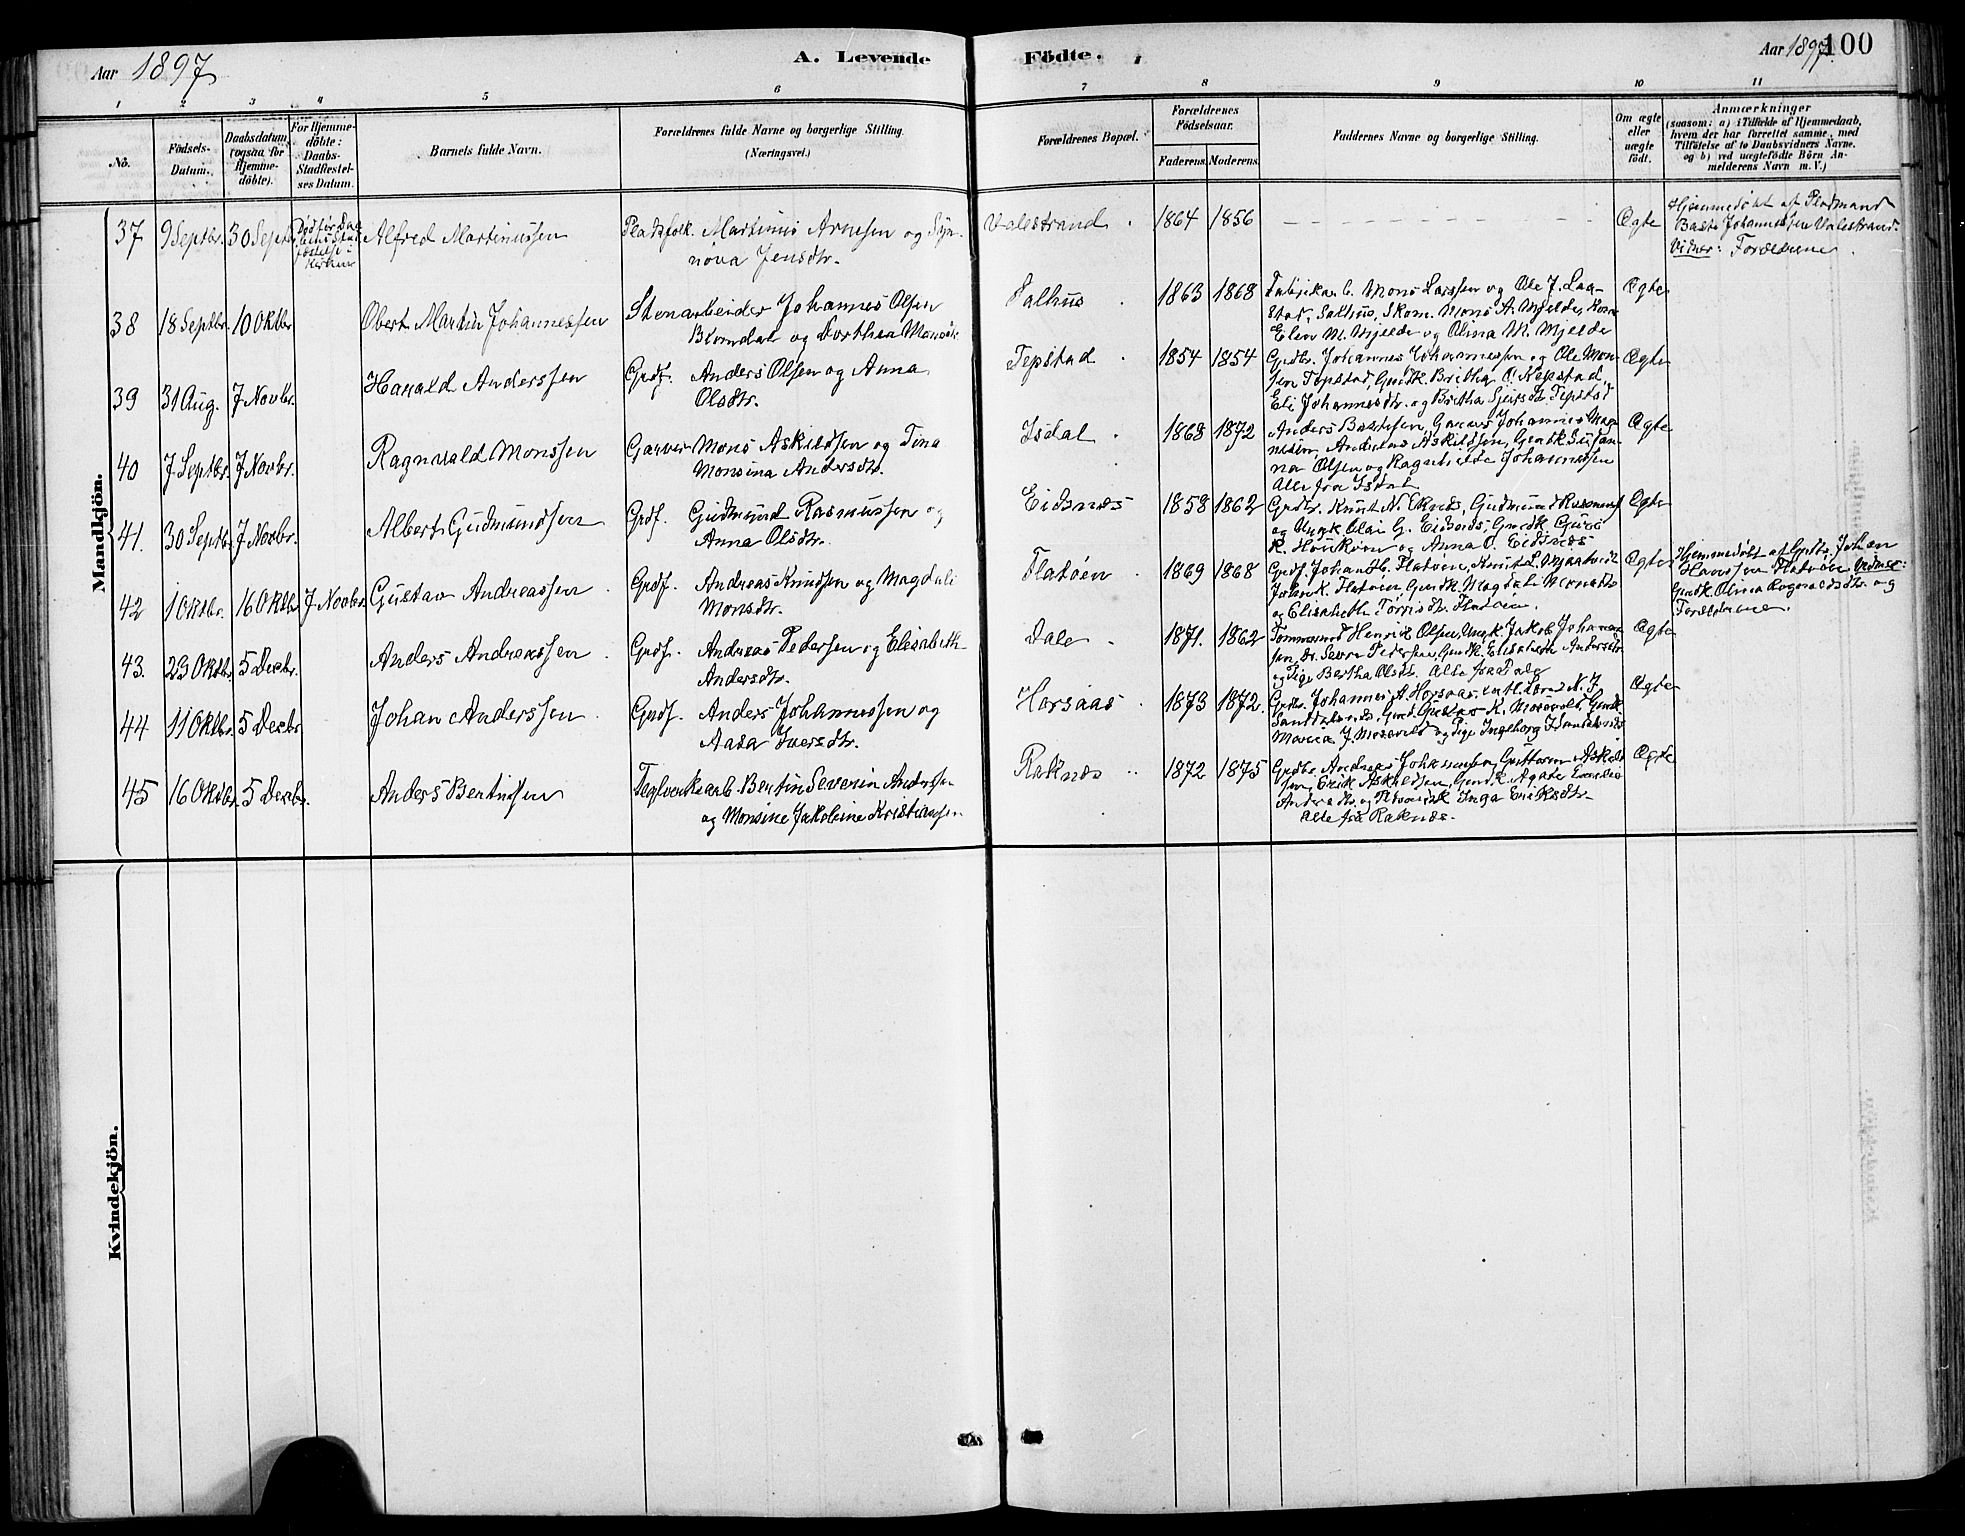 Aar 1897
A. Levende Födte.
Aar 1897.
100
1 2 3 4 5 6 7 8 9 10 11
No.
Födsels-Datum.
Daabsdatum (ogsaa for Hjemme-döbte).
For Hjemme-döbte: Daabs-Stadfæstel-ses Datum.
Barnets fulde Navn.
Forældrenes fulde Navne og borgerlige Stilling. (Næringsvei.)
Forældrenes Bopæl.
Forældrenes Födselsaar.
Faderens. Moderens.
Faddernes Navne og borgerlige Stilling.
Om ægte eller uægte födt.
Anmærkninger
(saasom: a) i Tilfælde af Hjemmedaab,
hvem der har forrettet samme, med
Tilföielse af to Daabsvidners Navne,
og b) ved uægtefödte Börn An-
melderens Navn m. V.)
Mandkjön.
37 9 Septbr. 30 Septbr. Död før Daa-bens Stad-fæstelse i Kirken Alfred Martinussen Pladsfolk. Martinus Arnesen og Syn-
nova Jensdtr. Valestrand. 1864 1856 Ægte Hjemmedöbt af Pladsmand
Baste Johannessen Valestrand.
Vidner: Forældrene.
38 18 Septbr. 10 Oktbr Obert Martin Johannessen Stenarbeider Johannes Olsen
Blomdal og Dorthea Monsdtr. Salhus. 1863 1868 Fabrikar b. Mons Larssen og Ole J. Laa-
stad, Salhus, Skom. Mons A. Mjelde, Kone
Elen M. Mjelde og Olina M. Mjelde Ægte
39 31 Aug. 7 Novbr. Harald Anderssen Grdf. Anders Olsen og Anna
Olsdtr. Tepstad. 1854 1854 Grdbr. Johannes Johannessen og Ole Mon-
sen Tepstad, Gmdk. Britha O. Tepstad,
Eli Johannesdtr. og Britha Sjursdtr. Tepstad Ægte
40 7 Septbr. 7 Novbr. Ragnvald Monssen Garver Mons Askildsen og Tina
Monsina Andersdtr. Isdal. 1868 1872 Anders Bastesen, Garver Johannes Mag-
nesen, Andreas Askildsen, Gmdk Susan-
na Olsen og Ragnhilde Johannessen
Alle fra Isdal Ægte
41. 30 Septbr. 7 Novbr. Albert Gudmundsen Grdf. Gudmund Rasmussen og
Anna Olsdtr. Eidsnæs 1858 1862 Grdbr. Knut N. Eknæs, Gudmund Rasmussen
og Ungk. Olai G. Eidsnæs Gmdk Guro
K. og Anna O. Eidsnæs Ægte
42 1 Oktbr. 16 Oktbr. 7 Novbr. Gustav Andreassen Grdf. Andreas Knudsen og Magdali
Monsdtr. Flatøen. 1869 1868 Grdf. Johan H. Flatøen, Knut L. Mjaatveidt
Johan K. Flatøen Gmdk. Magdali Monsdtr
og Elisabeth Torrisdtr. Flatøen. Ægte Hjemmedöbt af Grdbr. Johan
Hanssen Flatøen. Vidner:
Gmdk. Olina Ragnvaldsdtr. og
Forældrene.
43. 23 Oktbr. 5 Decbr. Anders Andreassen Grdf. Andreas Pedersen og Elisabeth
Andersdtr. Dale 1871. 1862 Tømmermd Henrik Olsen, Ungk. Jakob Johannes-
sen, Dr. Sevrin Pedersen, Gmdk. Elisabeth Andersdtr
og Pige Bertha Olsdtr. Alle fra Dale Ægte
44. 11 Oktbr. 5 Decbr Johan Anderssen Grdf. Anders Johannessen og
Aasa Iversdtr. Horsaas. 1873 1872. Grdbr. Johannes A. Horsaas, N. J.
Sanddalsnæs, Gmd. Gustav K. Mosevold, Gmdk
Maria J. Mosevold og Pige Ingeborg I. Ægte
45 16 Oktbr. 5 Decbr. Anders Bertinsen Teglverksarb. Bertin Severin Anderssen
og Monsine Jakobine Kristiansen Raknæs 1872 1875 Grdbr. Andreas Guttorm Askild-
sen, Erik Askildsen, Gmdk. Agate Emilie
Andersdtr. og Inga Eriksdtr.
Alle fra Raknæs. Ægte
Kvindekjön.